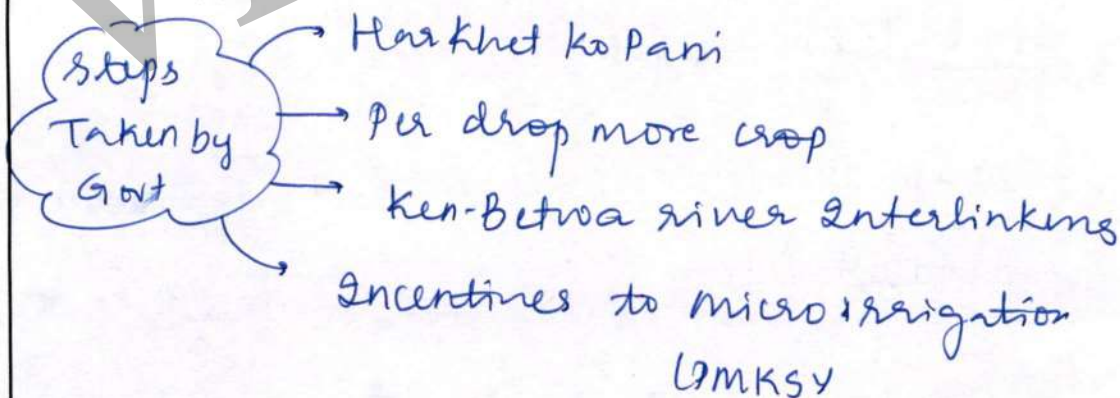 Steps
Taken by
Govt
Har Khet ko Pani
Per drop more crop
Ken-Betwa river Interlinking
Incentives to micro irrigation
PMKSY